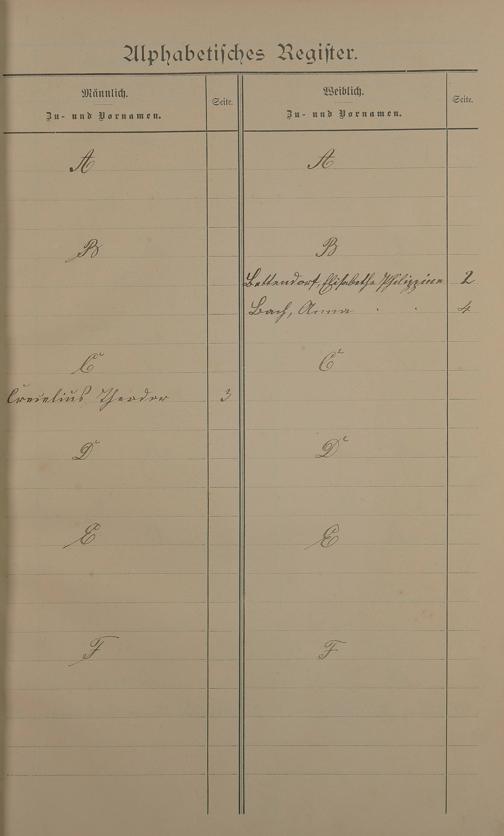 Alphabetisches Register.
Männlich.
Zu- und Vornamen.
Seite.
Weiblich.
Zu- und Vornamen.
Seite.
A
A
B
B
Bettendorf, Elisabetha Philippine 2
Bach, Anna 4
C
C
Theodor 3
D
D
E
E
F
F